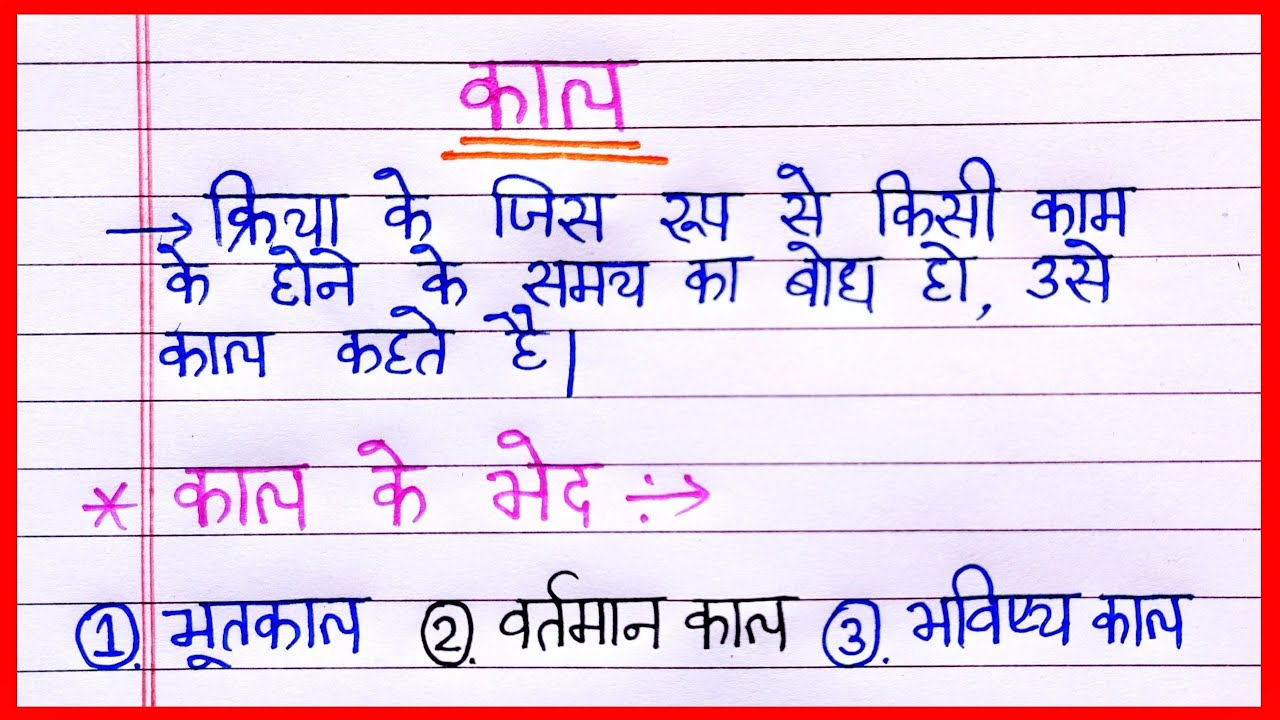 काल
→ क्रिया के जिस रूप से किसी काम
के होने के समय का बोध हो, उसे
काल कहते है।
* काल के भेद ÷→
①. भूतकाल ②. वर्तमान काल ③. भविष्य काल